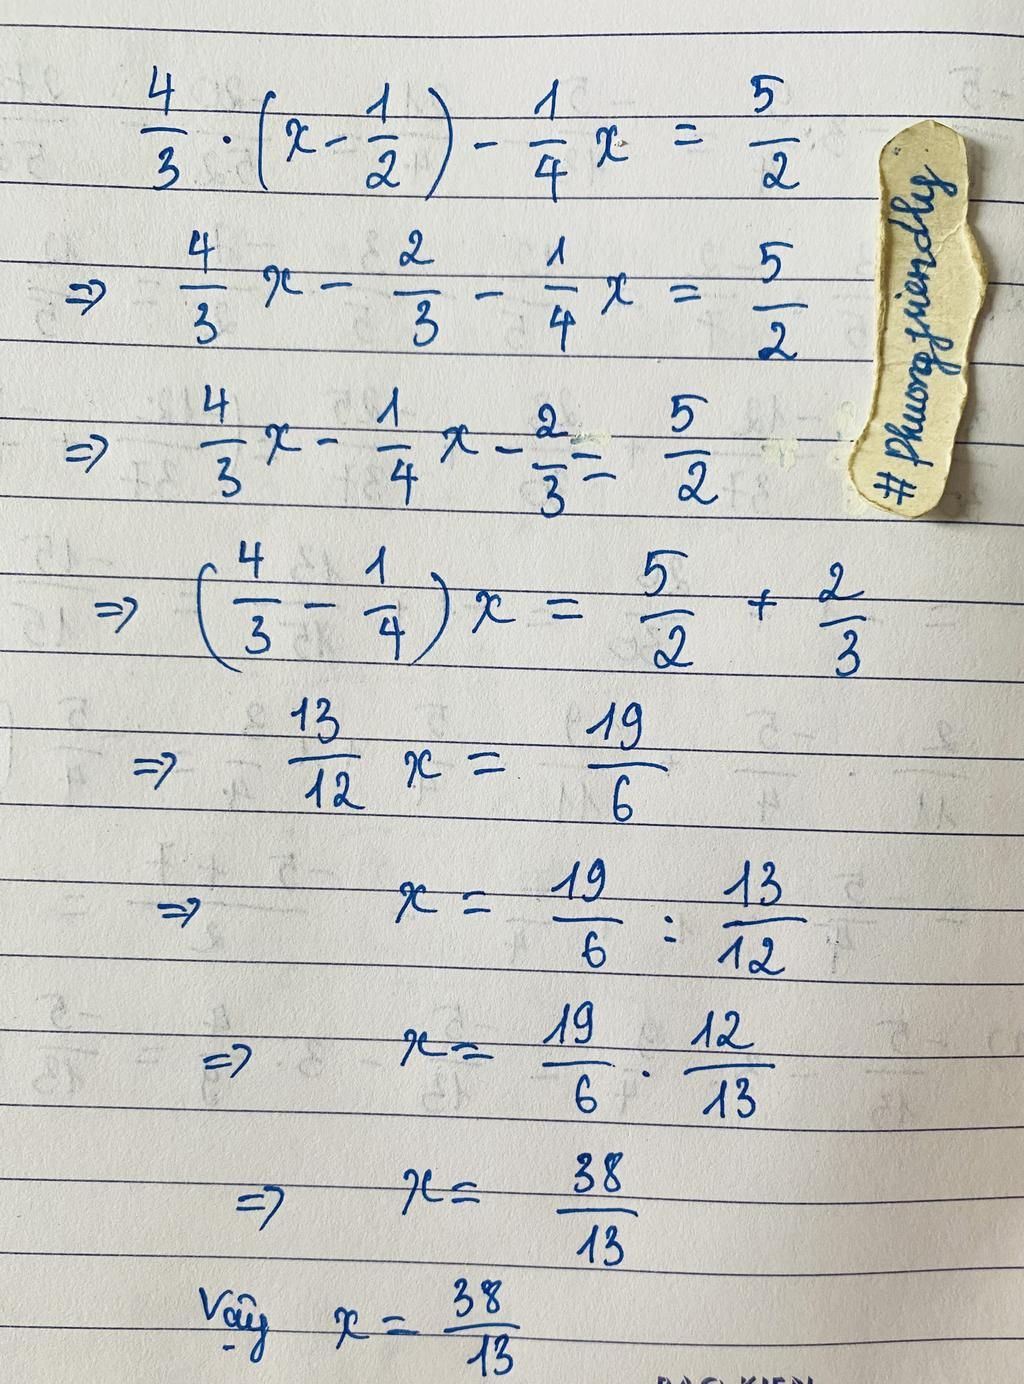 4/3 . (x - 1/2) - 1/4 x = 5/2
=> 4/3 x - 2/3 - 1/4 x = 5/2
=> 4/3 x - 1/4 x - 2/3 = 5/2
=> (4/3 - 1/4) x = 5/2 + 2/3
=> 13/12 x = 19/6
=> x = 19/6 : 13/12
=> x = 19/6 . 12/13
=> x = 38/13
Vậy x = 38/13
# Phuongfriendly